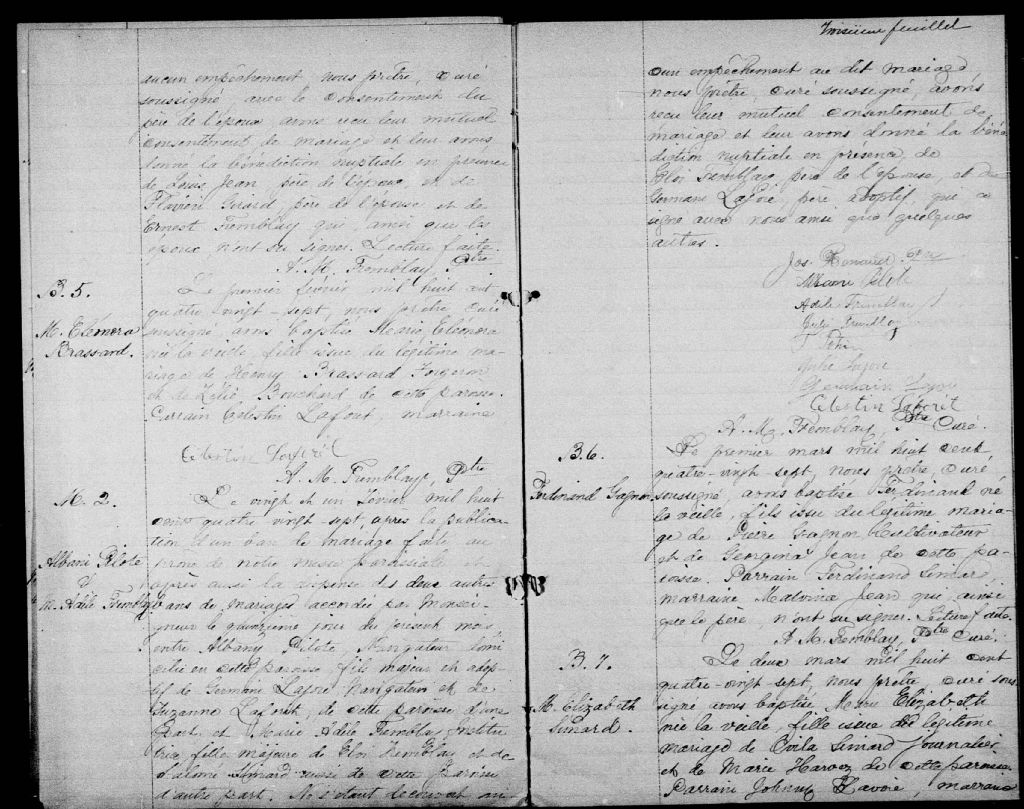 aucun empêchement nous prêtre, curé
soussigné, avec le consentement du
père de l'époux, avons reçu leur mutuel
consentement de mariage et leur avons
donné la bénédiction nuptiale en présence
de Louis Jean, père de l'époux, et de
Flavien Girard père de l'épouse et de
Ernest Tremblay qui, ainsi que les
époux, n'ont su signer. Lecture faite.
A. M. Tremblay, Ptre
B. 5.
M. Eleonora
Brassard.
Le premier février mil huit cent
quatre-vingt-sept, nous prêtre, curé
soussigné avons baptisé Marie Eléonora
née la veille, fille issue du légitime ma-
riage de Henry Brassard Forgeron
et de Zélie Bouchard de cette paroisse.
Parrain Célestin Lafort, marraine
Celestin Laforêt
A. M. Tremblay, Ptre
M. 2.
Albani Pilote
&
M. Adèle Tremblay
Le vingt et un février mil huit
cent quatre vingt-sept, après la publica-
tion d'un ban de mariage faite au
prône de notre messe paroissiale et
après aussi la dispense des deux autres
bans de mariages accordée par Monsei-
gneur le quinzième jour du présent mois
entre Albany Pilote, Navigateur domi
cilié en cette paroisse fils majeur et adop
tif de Germain Lajoie Navigateur et de
Suzanne Laforêt, de cette paroisse d'une
part, et Marie Adèle Tremblay Institu
trice fille majeure de Eloi Tremblay et de
Salomé Simard aussi de cette paroisse
d'autre part. Ne s'étant découvert au
Troisième feuillet
cun empêchement au dit mariage
nous prêtre, curé soussigné, avons
reçu leur mutuel consentement de
mariage et leur avons donné la béné
diction nuptiale en présence, de
Eloi Tremblay, père de l'épouse, et de
Germain Lajoie, père, adoptif, qui a
signé avec nous ainsi que quelques
autres.
Jos. Renaud
Albani Pilote
Adèle Tremblay
Tremblay
Julie Lajoie
Germain Lajoie
Celestin Laforêt
A. M. Tremblay, Ptre Curé.
B. 6.
Ferdinand Gagnon
Le premier mars mil huit cent
quatre-vingt sept, nous prêtre, curé
soussigné, avons baptisé Ferdinand né
la veille, fils issu du légitime maria-
ge de Pierre Gagnon Cultivateur
et de Georgina Jean de cette pa
roisse. Parrain Ferdinand Simard,
marraine Malvina Jean qui, ainsi
que le père, n'ont su signer. Lecture faite.
A. M. Tremblay, Ptre Curé.
B. 7.
M. Elizabeth
Simard.
Le deux mars mil huit cent
quatre-vingt-sept, nous prêtre, curé sous
signé avons baptisé Marie Elizabeth
née la veille, fille issue du légitime
mariage de Ovila Simard Journalier
et de Marie Harvez de cette paroisse
Parrain Johnny Savoie, marraine